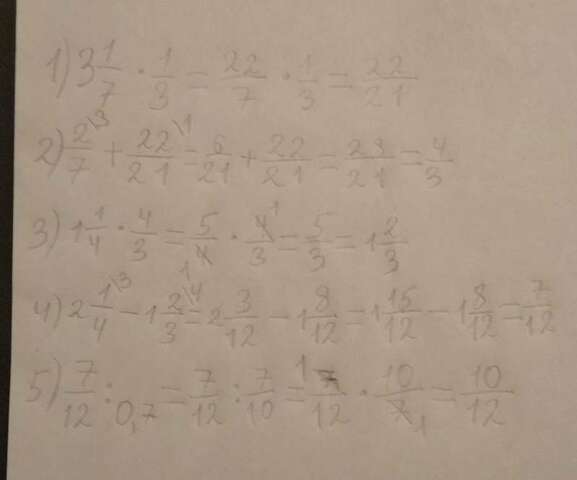 1) 3 1/7 · 1/3 = 22/7 · 1/3 = 22/21
2) 2/7 \3 + 22/21 \1 = 6/21 + 22/21 = 28/21 = 4/3
3) 1 1/4 · 4/3 = 5/4 · 4/3 1 = 5/3 = 1 2/3
4) 2 1/4 \3 - 1 2/3 \4 = 2 3/12 - 1 8/12 = 1 15/12 - 1 8/12 = 7/12
5) 7/12 : 0,7 = 7/12 : 7/10 = 1 7/12 · 10/7 1 = 10/12